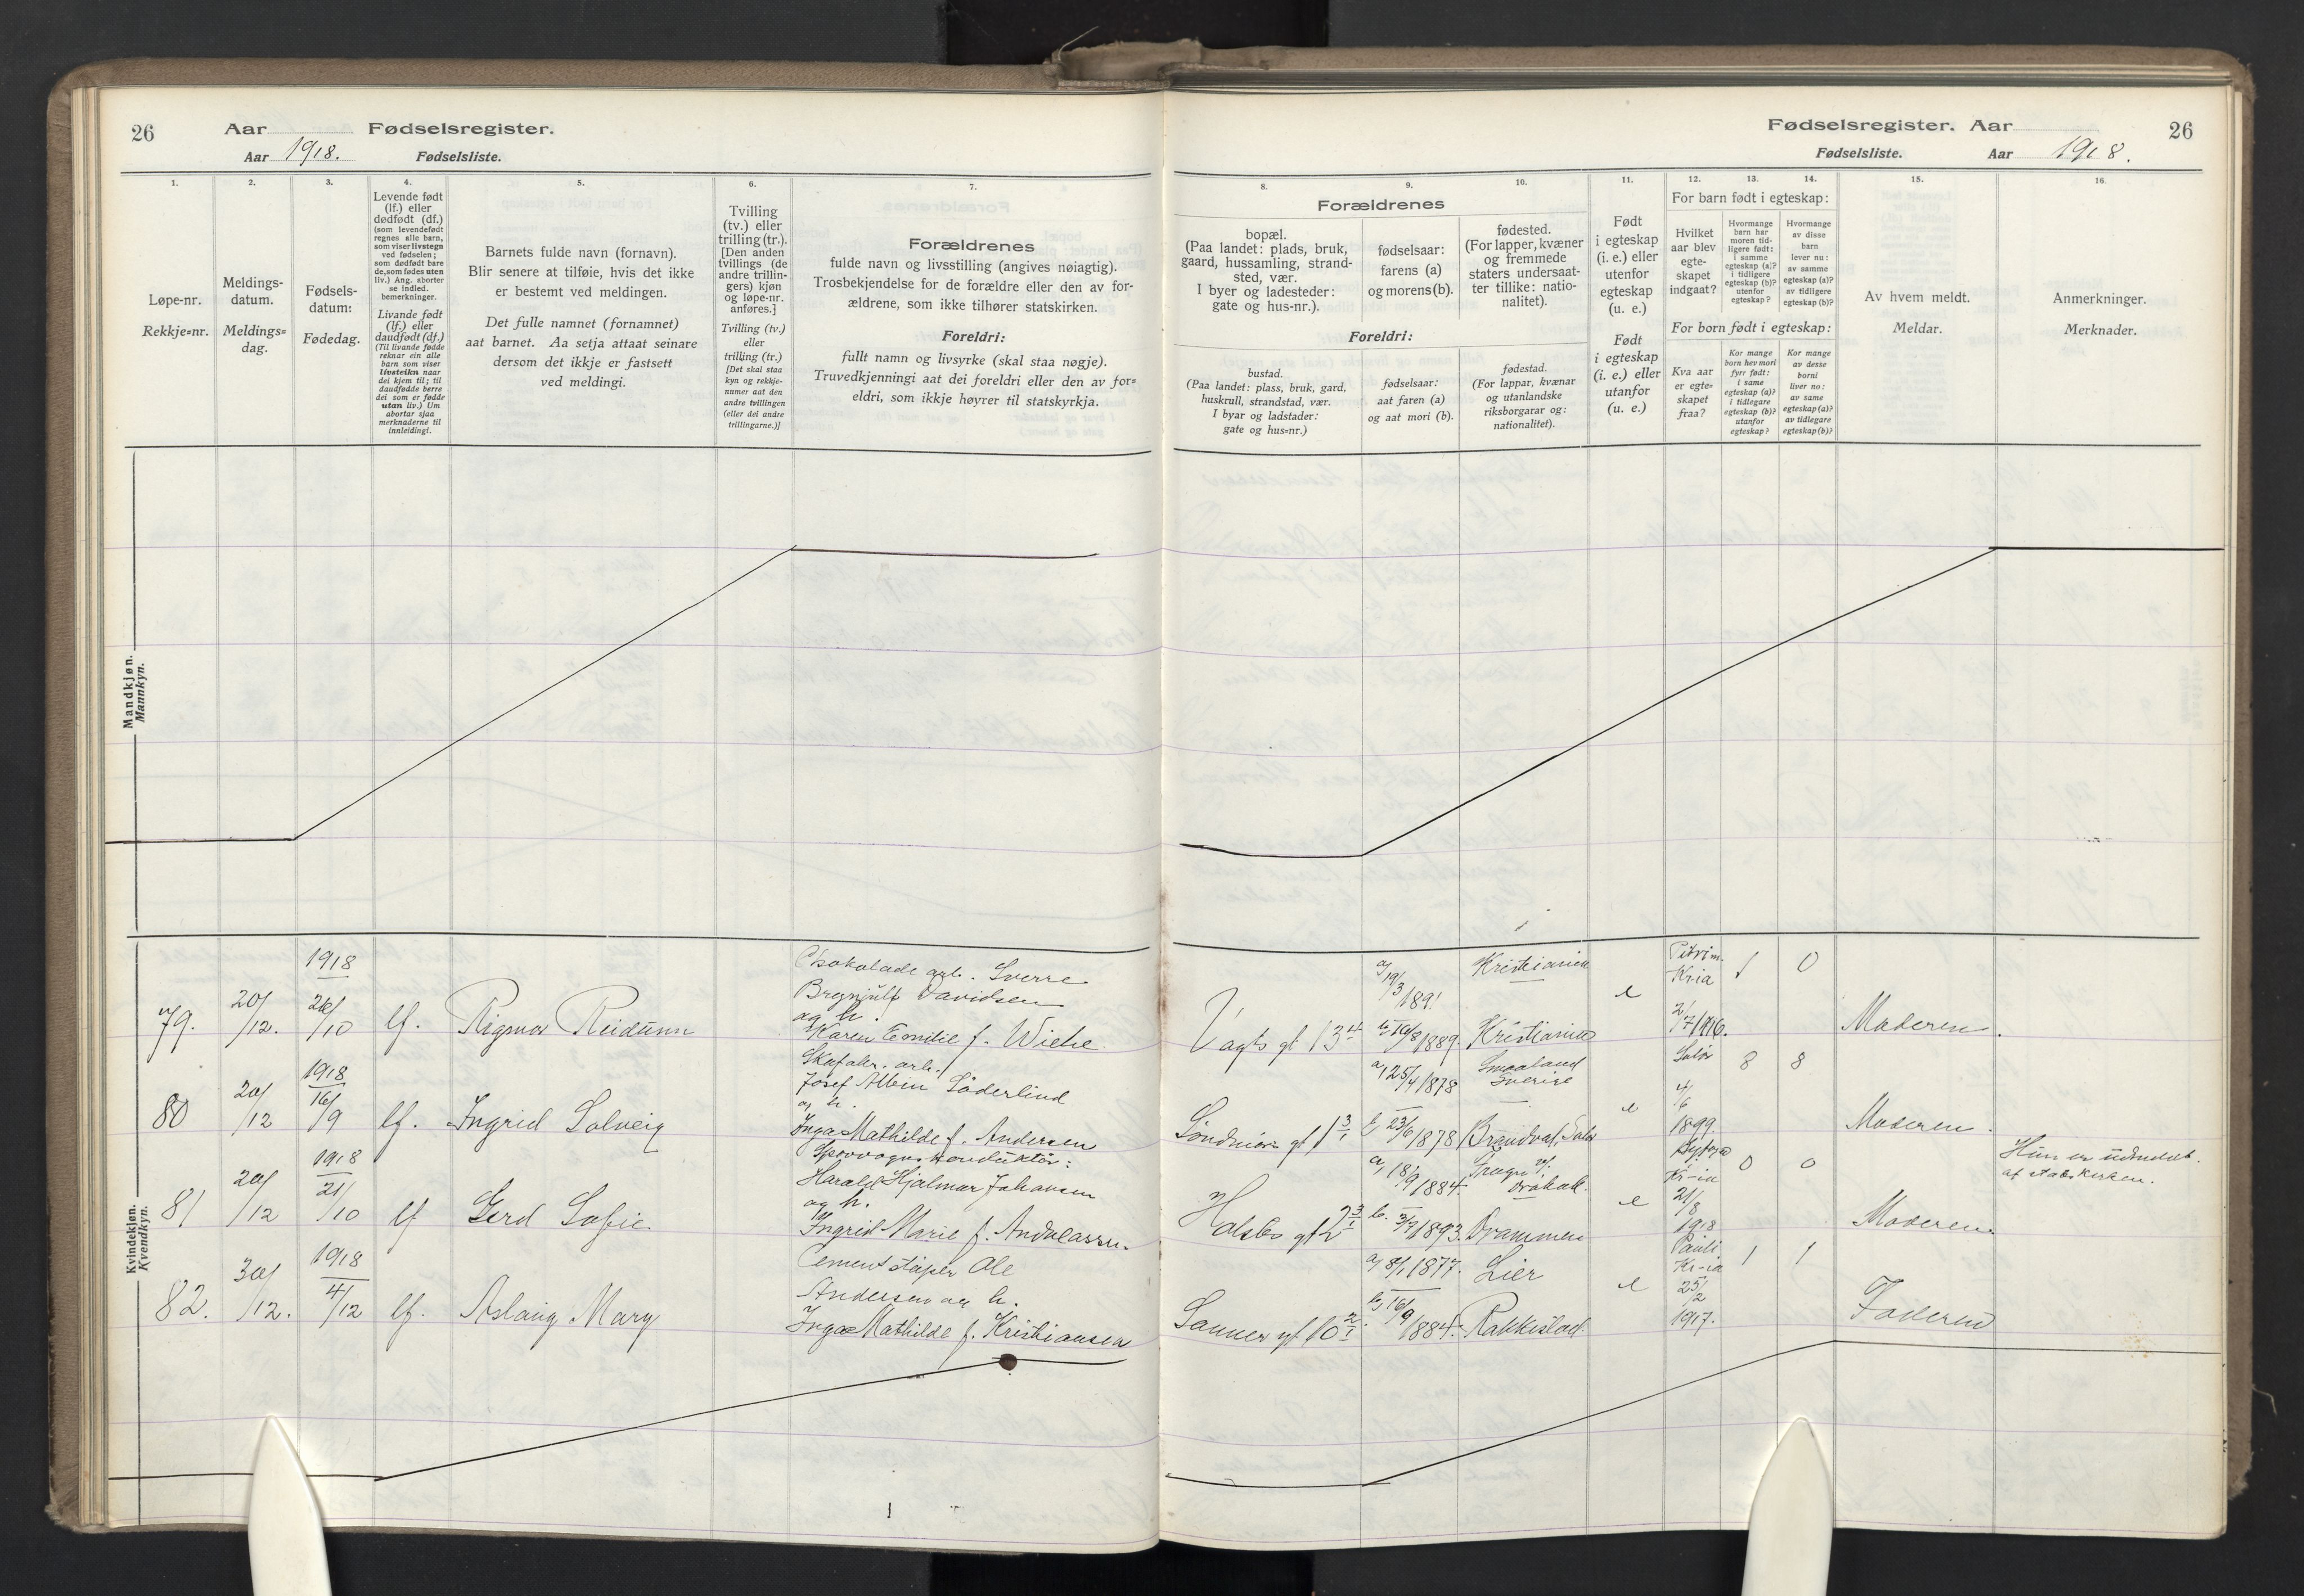 26
Aar
Fødselsregister.
Aar 1918.
Fødselsliste.
1.
Løpe-nr.
Rekkje=nr.
2.
Meldings-
datum.
Meldings=
dag.
3.
Fødsels-
datum:
Fødedag.
4.
Levende født
(lf.) eller
dødfødt (df.)
(som levendefødt
regnes alle barn,
som viser livstegn
ved fødselen;
som dødfødt bare
de, som fødes uten
liv.) Ang. aborter
se indled.
bemerkninger.
Livande født
(lf.) eller
daudfødt (df.)
(Til livande fødde
reknar ein alle
barn som viser
livsteikn naar
dei kjem til; til
daudfødde berre
dei som er fødde
utan liv.) Um
abortar sjaa
merknaderne til
innleidingi.
5.
Barnets fulde navn (fornavn).
Blir senere at tilføie, hvis det ikke
er bestemt ved meldingen.
Det fulle namnet (fornamnet)
aat barnet. Aa setja attaat seinare
dersom det ikkje er fastsett
ved meldingi.
6.
Tvilling
(tv.) eller
trilling (tr.).
[Den anden
tvillings (de
andre trillin-
gers) kjøn
og løpe-nr.
anføres.]
Tvilling (tv.)
eller
trilling (tr.)
[Det skal staa
kyn og rekkje-
numer aat den
andre tvillingen
(eller dei andre
trillingarne.)]
7.
Forældrenes
fulde navn og livsstilling (angives nøiagtig).
Trosbekjendelse for de forældre eller den av for-
ældrene, som ikke tilhører statskirken.
Foreldri:
fullt namn og livsyrke (skal staa nøgje).
Truvedkjenningi aat dei foreldri eller den av for=
eldri, som ikkje høyrer til statskyrkja.
Mandkjøn.
Mannkyn.
Kvindekjøn.
Kvendkyn.
79.
20/12.
1918
/10
lf.
Rigmor Reidunn
Chokolade arb. Sverre
Brynjulf Davidsen
og h.
Karen Emilie f. Wiehe
80
20/12
1918
16/9
lf.
Ingrid Solveig
arb.
Josef Albin Söderlind
og h.
Inga Mathilde f. Andersen
81
20/12
1918
21/10
lf
Gerd Sofie
Sporvogns konduktør:
Harald Hjalmar Johansen
og h.
Ingrid Marie f.
82.
30/12.
1918
4/12
lf.
Aslaug Mary
Cementstøper Ole
Andersen og h.
Inga Mathilde f. Kristiansen
Fødselsregister. Aar
26
Fødselsliste.
Aar 1918.
Forældrenes
8.
bopæl.
(Paa landet: plads, bruk,
gaard, hussamling, strand-
sted, vær.
I byer og ladesteder:
gate og hus-nr.).
9.
fødselsaar:
farens (a)
og morens (b).
10.
fødested.
(For lapper, kvæner
og fremmede
staters undersaat-
ter tillike: natio-
nalitet).
Foreldri:
bustad.
(Paa landet: plass, bruk, gard,
huskrull, strandstad, vær.
I byar og ladstader:
gate og hus=nr.)
fødselsaar:
aat faren (a)
og aat mori (b).
fødestad.
(For lappar, kvænar
og utanlandske
riksborgarar og:
nationalitet).
11.
Født
i egteskap
(i. e.) eller
utenfor
egteskap
(u. e.)
Født
i egteskap
(i. e.) eller
utanfor
(u. e.)
For barn født i egteskap:
12.
Hvilket
aar blev
egte-
skapet
indgaat?
13.
Hvormange
barn har
moren tid-
ligere født:
i samme
egteskap (a)?
i tidligere
egteskap (b)?
utenfor
egteskap?
14.
Hvormange
av disse
barn
lever nu:
av samme
egteskap (a)?
av tidligere
egteskap (b)?
For born født i egteskap:
Kva aar
er egte=
skapet
fraa?
Kor mange
born hev mori
fyrr født:
i same
egteskap (a)?
i tidlegare
egteskap (b)?
utanfor
egteskap?
Kor mange
av desse
borni
liver no:
av same
egteskap (a)?
av tidlegare
egteskap (b)?
15.
Av hvem meldt.
Meldar.
16.
Anmerkninger.
Merknader.
Vagts gt 13
a, 19/3 1891
b, 16/8 1889.
Kristiania
Kristiania
e
Kria
2/7 1916.
1
0
Moderen.
a, 25/4 1878
b 23/6 1878
Smaaland
Sverige
Brandval, Solør
e
Solør
4/6
1899.
8
8
Moderen.
a, 18/9 1884.
b. 3/9 1893.
Drammen
e
Kr-ia
21/8
1918
0
0
Moderen.
Hun er udmeldt
af statskirken.
Sanner gt 10
a, 8/1 1877.
b, 16/9 1884.
Lier
Rakkestad.
e
Pauli
Kr-ia
25/2
1917.
1
1
Faderen